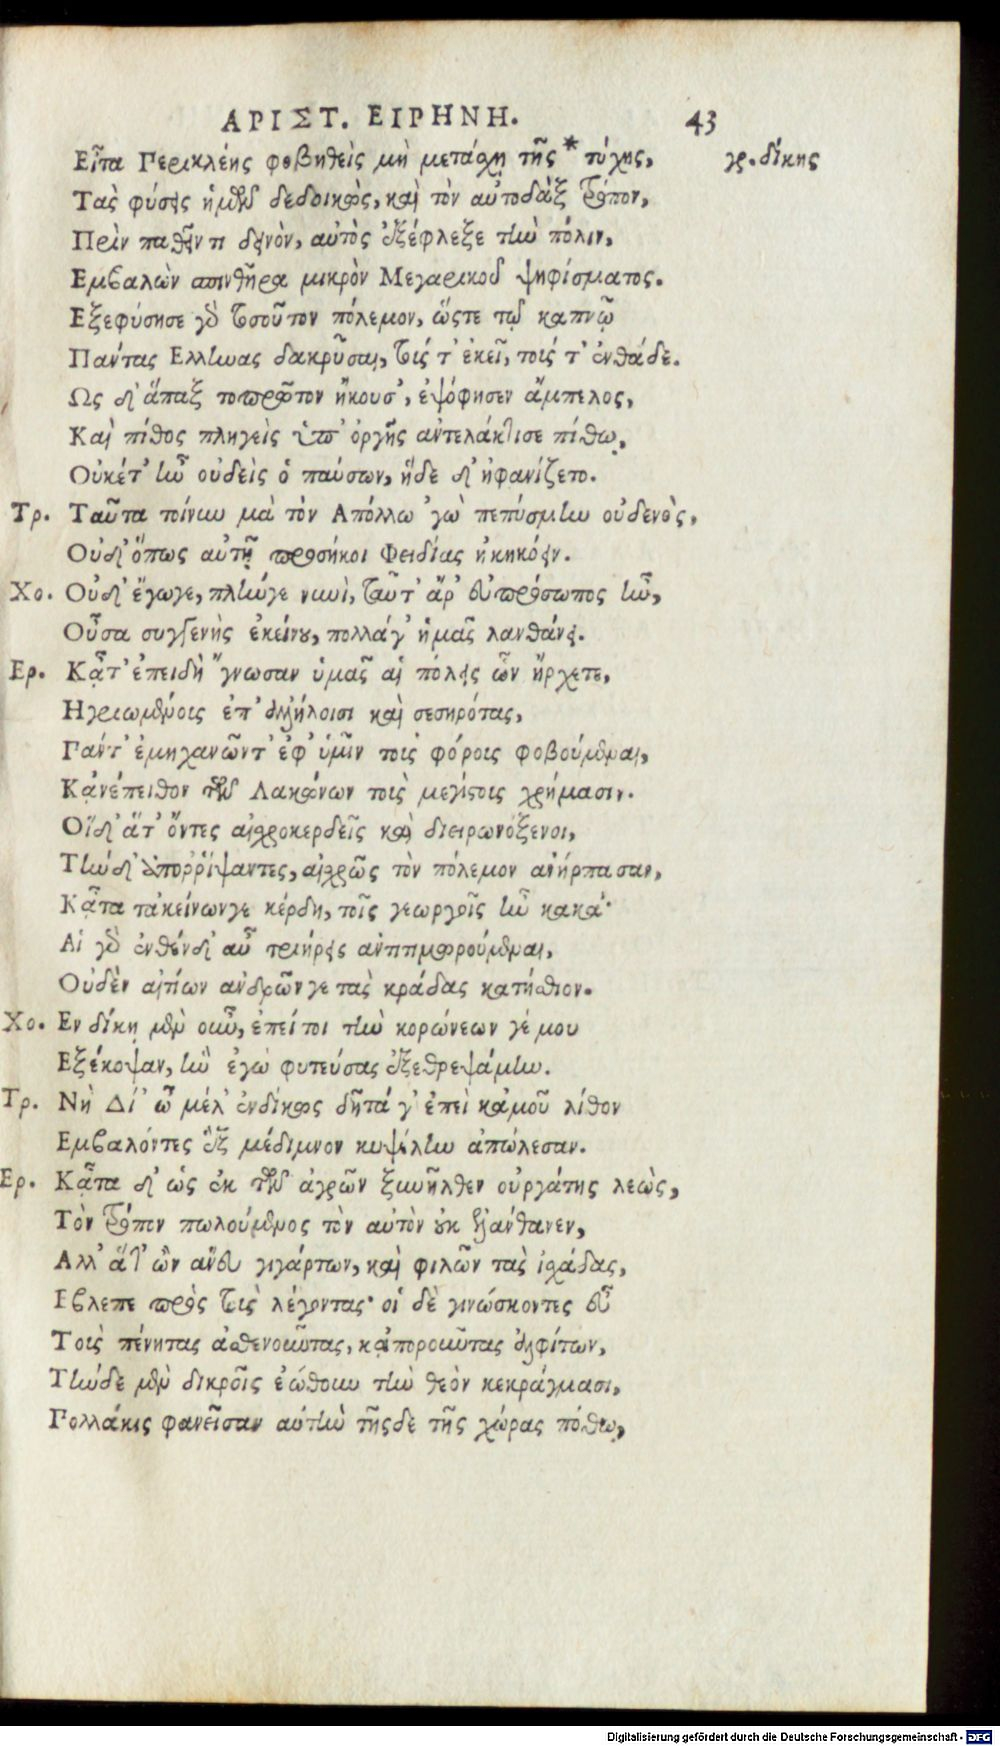 ΑΡΙΣΤ. ΕΙΡΗΝΗ. 43
Εἶτα Περικλέης φοβηθεὶς μὴ μετάχῃ τῆς * τύχης, γρ. δίκης
Τὰς φύσεις ἡμῶν δεδοικὼς, καὶ τὸν αὐτοδὰξ τρόπον,
Πρὶν παθεῖν τι δεινὸν, αὐτὸς ἐξέφλεξε τὴν πόλιν,
Εμβαλὼν σπινθῆρα μικρὸν Μεγαρικοῦ ψηφίσματος.
Εξεφύσησε γὸ τοσοῦτον πόλεμον, ὥςτε τῷ καπνῷ
Παντας Ελληνας δακρῦσαι, τοὺς τ' ἐκεῖ, τοὺς τ' ἐνθάδε.
Ως δ' ἅπαξ τοπρῶτον ἤκουσ', ἐψόφησεν ἄμπελος,
Καὶ πίθος πληγεὶς ὑπ' ὀργῆς ἀντελάκτισε πίθῳ,
Οὐκέτ' ἦν οὐδεὶς ὁ παύσων, ἥδε δ' ἠφανίζετο.
Τρ. Ταῦτα τοίνυν μὰ τὸν Απόλλω 'γὼ πεπύσμην οὐδενὸς,
Οὐδ' ὅπως αὐτῇ προσήκοι Φειδίας ἠκηκόειν.
Χο. Οὐδ' ἔγωγε, πλήνγε νυνὶ, ταῦτ' ἄρ' εὐπρόσωπος ἦν,
Οὖσα συγγενὴς ἐκείνου, πολλάγ' ἡμᾶς λανθάνει.
Ερ. Κᾆτ' ἐπειδὴ 'γνωσαν ὑμᾶς αἱ πόλεις ὧν ἤρχετε,
Ηγριωμένους ἐπ' ἀλλήλοισι καὶ σεσηρότας,
Παντ' ἐμηχανῶντ' ἐφ' ὑμῖν τοὺς φόρους φοβούμεναι,
Κἀνέπειθον τῶν Λακώνων τοὺς μεγίστους χρήμασιν.
Οἵδ' ἅτ' ὄντες αἰσχροκερδεῖς καὶ διειρωνόξενοι,
Τήνδ' ἀποῤῥίψαντες, αἰσχρῶς τὸν πόλεμον ἀνήρπασαν,
Κᾆτα τἀκείνωνγε κέρδη, τοῖς γεωργοῖς ἦν κακά·
Αἱ γὸ ἐνθένδ' αὖ τριήρεις ἀντιτιμωρούμεναι,
Οὐδὲν αἰτίων ἀνδρῶν γε τὰς κράδας κατήσθιον.
Χο. Εν δίκῃ μὲν οὖν, ἐπεί τοι τὴν κορώνεων γέ μου
Εξέκοψαν, ἣν ἐγὼ φυτεύσας ἐξεθρεψάμην.
Τρ. Νὴ Δί' ὦ μέλ' ἐνδίκως δῆτά γ' ἐπεὶ κἀμοῦ λίθον
Εμβαλόντες ἓξ μέδιμνον κυψέλην ἀπώλεσαν.
Ερ. Κᾆτα δ' ὡς ἐκ τῶν ἀγρῶν ξυνῆλθεν οὑργάτης λεὼς,
Τὸν τρόπον πωλούμενος τὸν αὐτὸν οὐκ ἐμάνθανεν,
Αλλ' ἅτ' ὢν ἄνευ γιγάρτων, καὶ φιλῶν τὰς ἰσχάδας,
Εβλεπε πρὸς τοὺς λέγοντας· οἱ δὲ γινώσκοντες εὖ
Τοὺς πένητας ἀσθενοῦντας, κἀποροῦντας ἀλφίτων,
Τήνδε μὲν δικροῖς ἐώθουν τὴν θεὸν κεκράγμασι,
Πολλάκις φανεῖσαν αὐτὴν τῆςδε τῆς χώρας πόθῳ,
Digitalisierung gefördert durch die Deutsche Forschungsgemeinschaft - DFG